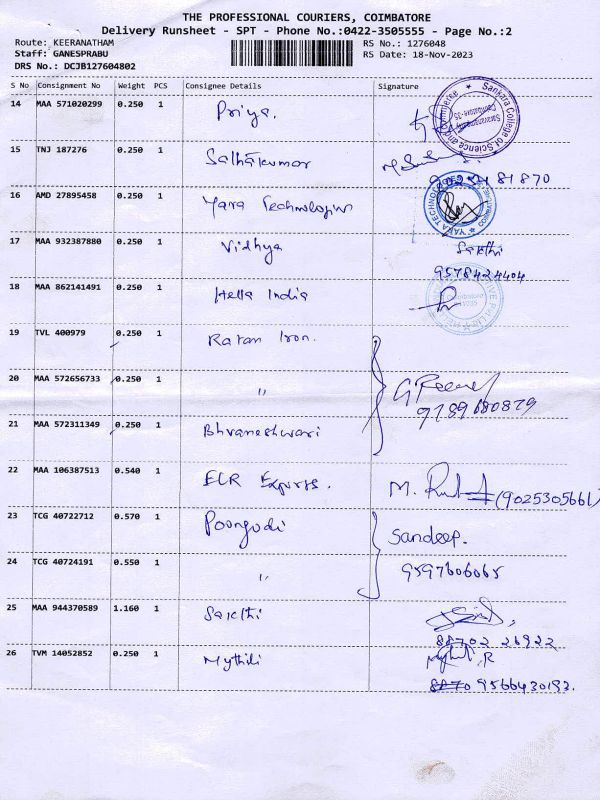 THE PROFESSIONAL COURIERS, COIMBATORE
Delivery Runsheet - SPT - Phone No.:0422-3505555 - Page No.:2
Route: KEERANATHAM RS No.: 1276048
Staff: GANESPRABU RS Date: 18-Nov-2023
DRS No.: DCJB127604802
S No Consignment No Weight PCS Consignee Details Signature
14 MAA 571020299 0.250 1 Priya. Sankara College of Science and Commerce
15 TNJ 187276 0.250 1 Sathiskumar
81870
16 AMD 27895458 0.250 1 Yara Technologies YARA TECHNOLOGIES COIMBATORE
17 MAA 932387880 0.250 1 Vidhya Sakthi
9578424404
18 MAA 862141491 0.250 1 Hella India
19 TVL 400979 0.250 1 Ratan Iron.
20 MAA 572656733 0.250 1 "
9789680879
21 MAA 572311349 0.250 1 Bhvaneshwari
22 MAA 106387513 0.540 1 ECR Express. M. (9025305661)
23 TCG 40722712 0.570 1 Poongodi Sandeep.
24 TCG 40724191 0.550 1 " 9597606065
25 MAA 944370589 1.160 1 Sakthi
88702 26922
26 TVM 14052852 0.250 1 Mythili Mythili, R
8870 9566430193.